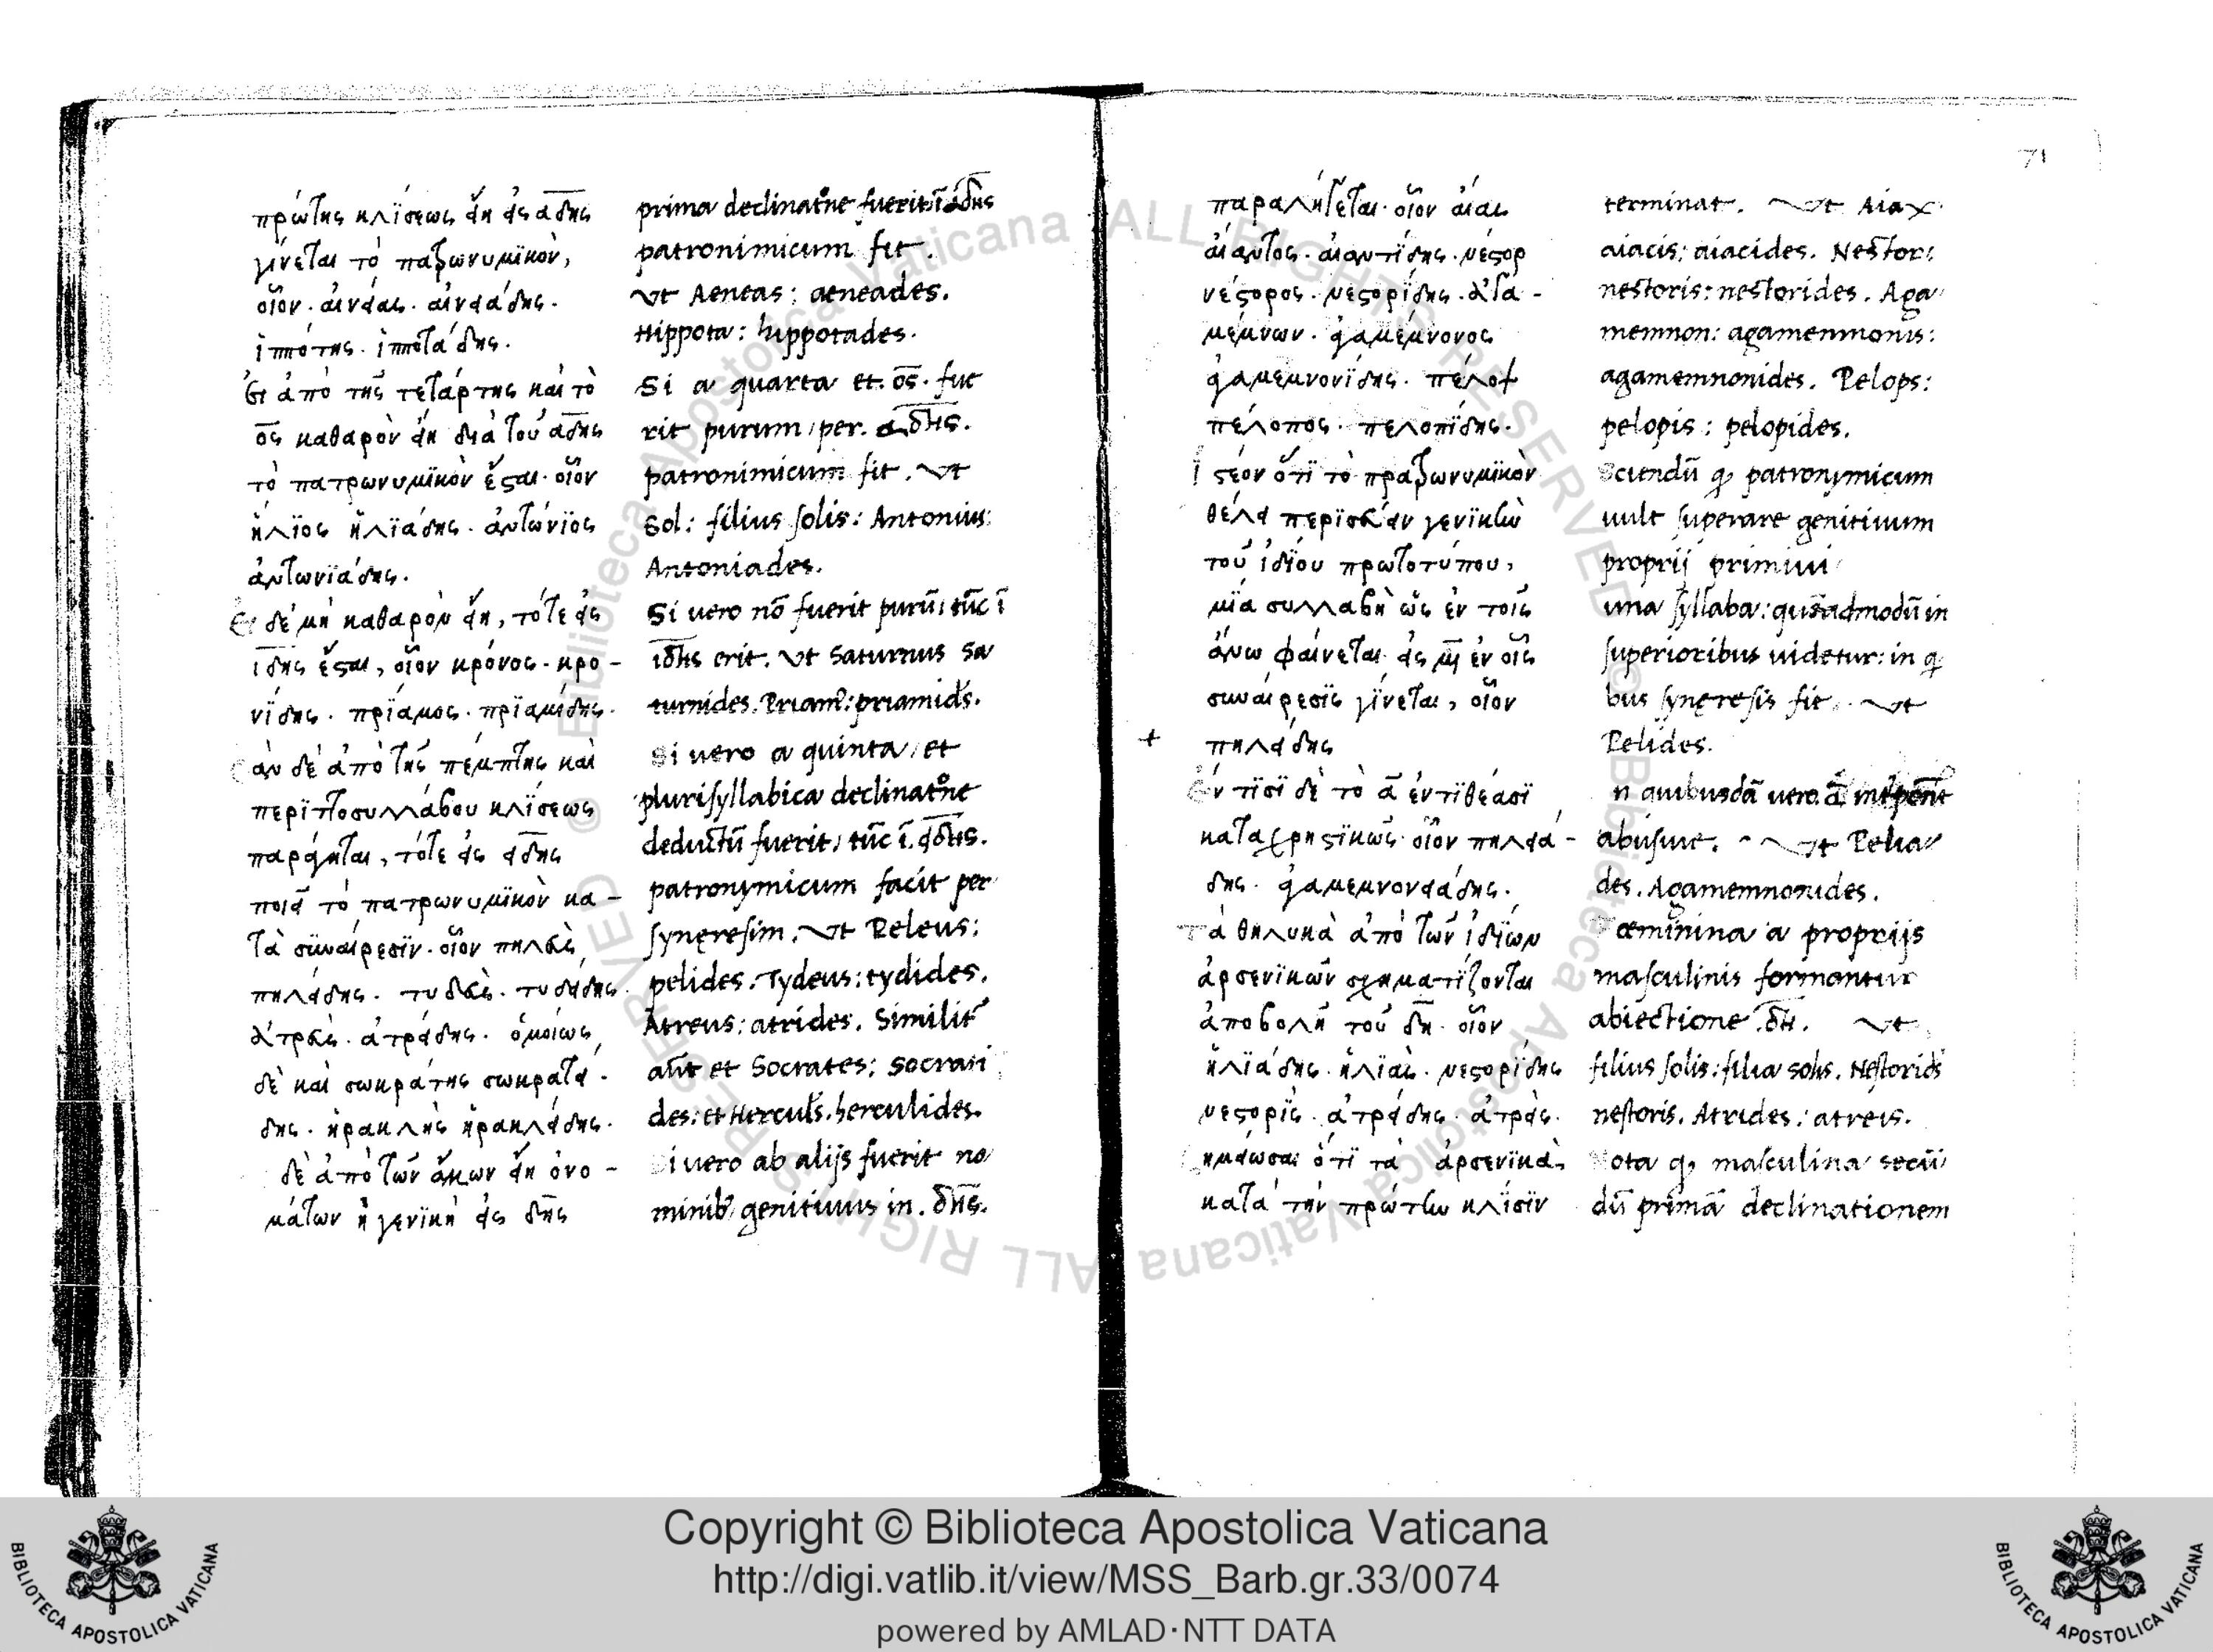 πρώτης κλίσεως ἢ εἰς αδης
γίνεται τὸ πατρωνυμικὸν,
οἷον. αἰνείας. αἰνειάδης.
ἱππότης. ἱπποτάδης.
Εἰ ἀπὸ τῆς τετάρτης καὶ τὸ
ος καθαρὸν ᾖ διὰ τοῦ αδης
τὸ πατρωνυμικὸν ἔσται. οἷον
ἥλιος ἡλιάδης. ἀντώνιος
ἀντωνιάδης.
Εἰ δὲ μὴ καθαρὸν ᾖ, τότε εἰς
ιδης ἔσται, οἷον κρόνος. κρο-
νίδης. πρίαμος. πριαμίδης.
ἂν δὲ ἀπὸ τῆς πέμπτης καὶ
περιττοσυλλάβου κλίσεως
παράγηται, τότε εἰς ειδης
ποιεῖ τὸ πατρωνυμικὸν κα-
τὰ συναίρεσιν. οἷον πηλεὺς
πηλείδης. τυδεὺς. τυδείδης.
ἀτρεὺς. ἀτρείδης. ὁμοίως
δὲ καὶ σωκράτης σωκρατεί-
δης. ἡρακλῆς ἡρακλείδης.
δὲ ἀπὸ τῶν ἄλλων ᾖ ὀνο-
μάτων ἡ γενικὴ εἰς δης
prima declinatõne fuerit ĩ άδης
patronimicum fit.
vt Aeneas: aeneades.
Hippota: hippotades.
Si a quarta et. ος. fue
rit purum, per. αδης.
patronimicum fit. vt
Sol: filius solis: Antonius:
Antoniades.
Si uero nõ fuerit purũ, tũc ĩ
ιδης erit. vt Saturnus Sa
turnides. Priamꝰ: priamids.
Si uero a quinta, et
plurisyllabica declinatõne
deductũ fuerit, tũc ĩ. ειδης.
patronymicum facit per
synęresim. vt Peleus:
pelides. Tydeus: tydides.
Atreus: atrides. Similit̃
aũt et Socrates: socrati
des: et Hercules. herculides.
i uero ab alijs fuerit no
minibꝰ genitiuus in. δης.
71
παραλήγεται. οἷον αἴας
αἴαντος. αἰαντίδης. νέστορ
νέστορος. νεστορίδης. ἀγα-
μέμνων. ἀγαμέμνονος
ἀγαμεμνονίδης. πέλοψ
πέλοπος. πελοπίδης.
Ἰστέον ὅτι τὸ πρατρωνυμικὸν
θέλει περισσεύειν γενικὴν
τοῦ ἰδίου πρωτοτύπου,
μία συλλαβὴ ὡς ἐν τοῖς
ἄνω φαίνεται εἰς μὴ ἐν οἷς
συναίρεσις γίνεται, οἷον
+ πηλείδης
Ἔν τισι δὲ τὸ α ἐντιθέασι
καταχρηστικῶς. οἷον πηλειά-
δης. ἀγαμεμνονειάδης.
Τὰ θηλυκὰ ἀπὸ τῶν ἰδίων
ἀρσενικῶν σχηματίζονται
ἀποβολῇ τοῦ δη. οἷον
ἡλιάδης. ἡλιὰς. νεστορίδης
νεστορὶς. ἀτρείδης. ἀτρεὶς.
ημείωσαι ὅτι τὰ ἀρσενικὰ
κατὰ τὴν πρώτην κλίσιν
terminat. vt Aiax
aiacis: aiacides. Nestor:
nestoris: nestorides. Aga
memnon: agamemnonis:
agamemnonides. Pelops:
pelopis: pelopides.
Sciendũ ꝙ patronymicum
uult superare genitiuum
proprij primiui
una syllaba: quẽadmodũ in
superioribus uidetur: in q
bus synęresis fit. vt
Pelides.
n quibusdã uero. α
abusiue. vt Pelia
des. Agamemnonides.
Fœminina a proprijs
masculinis formantur
abiectione δη. vt
filius solis: filia solis. Nestorids
nestoris. Atrides: atreis.
Nota ꝙ masculina secũ
dũ primã declinationem
Copyright © Biblioteca Apostolica Vaticana
http://digi.vatlib.it/view/MSS_Barb.gr.33/0074
powered by AMLAD·NTT DATA
BIBLIOTECA APOSTOLICA VATICANA
BIBLIOTECA APOSTOLICA VATICANA